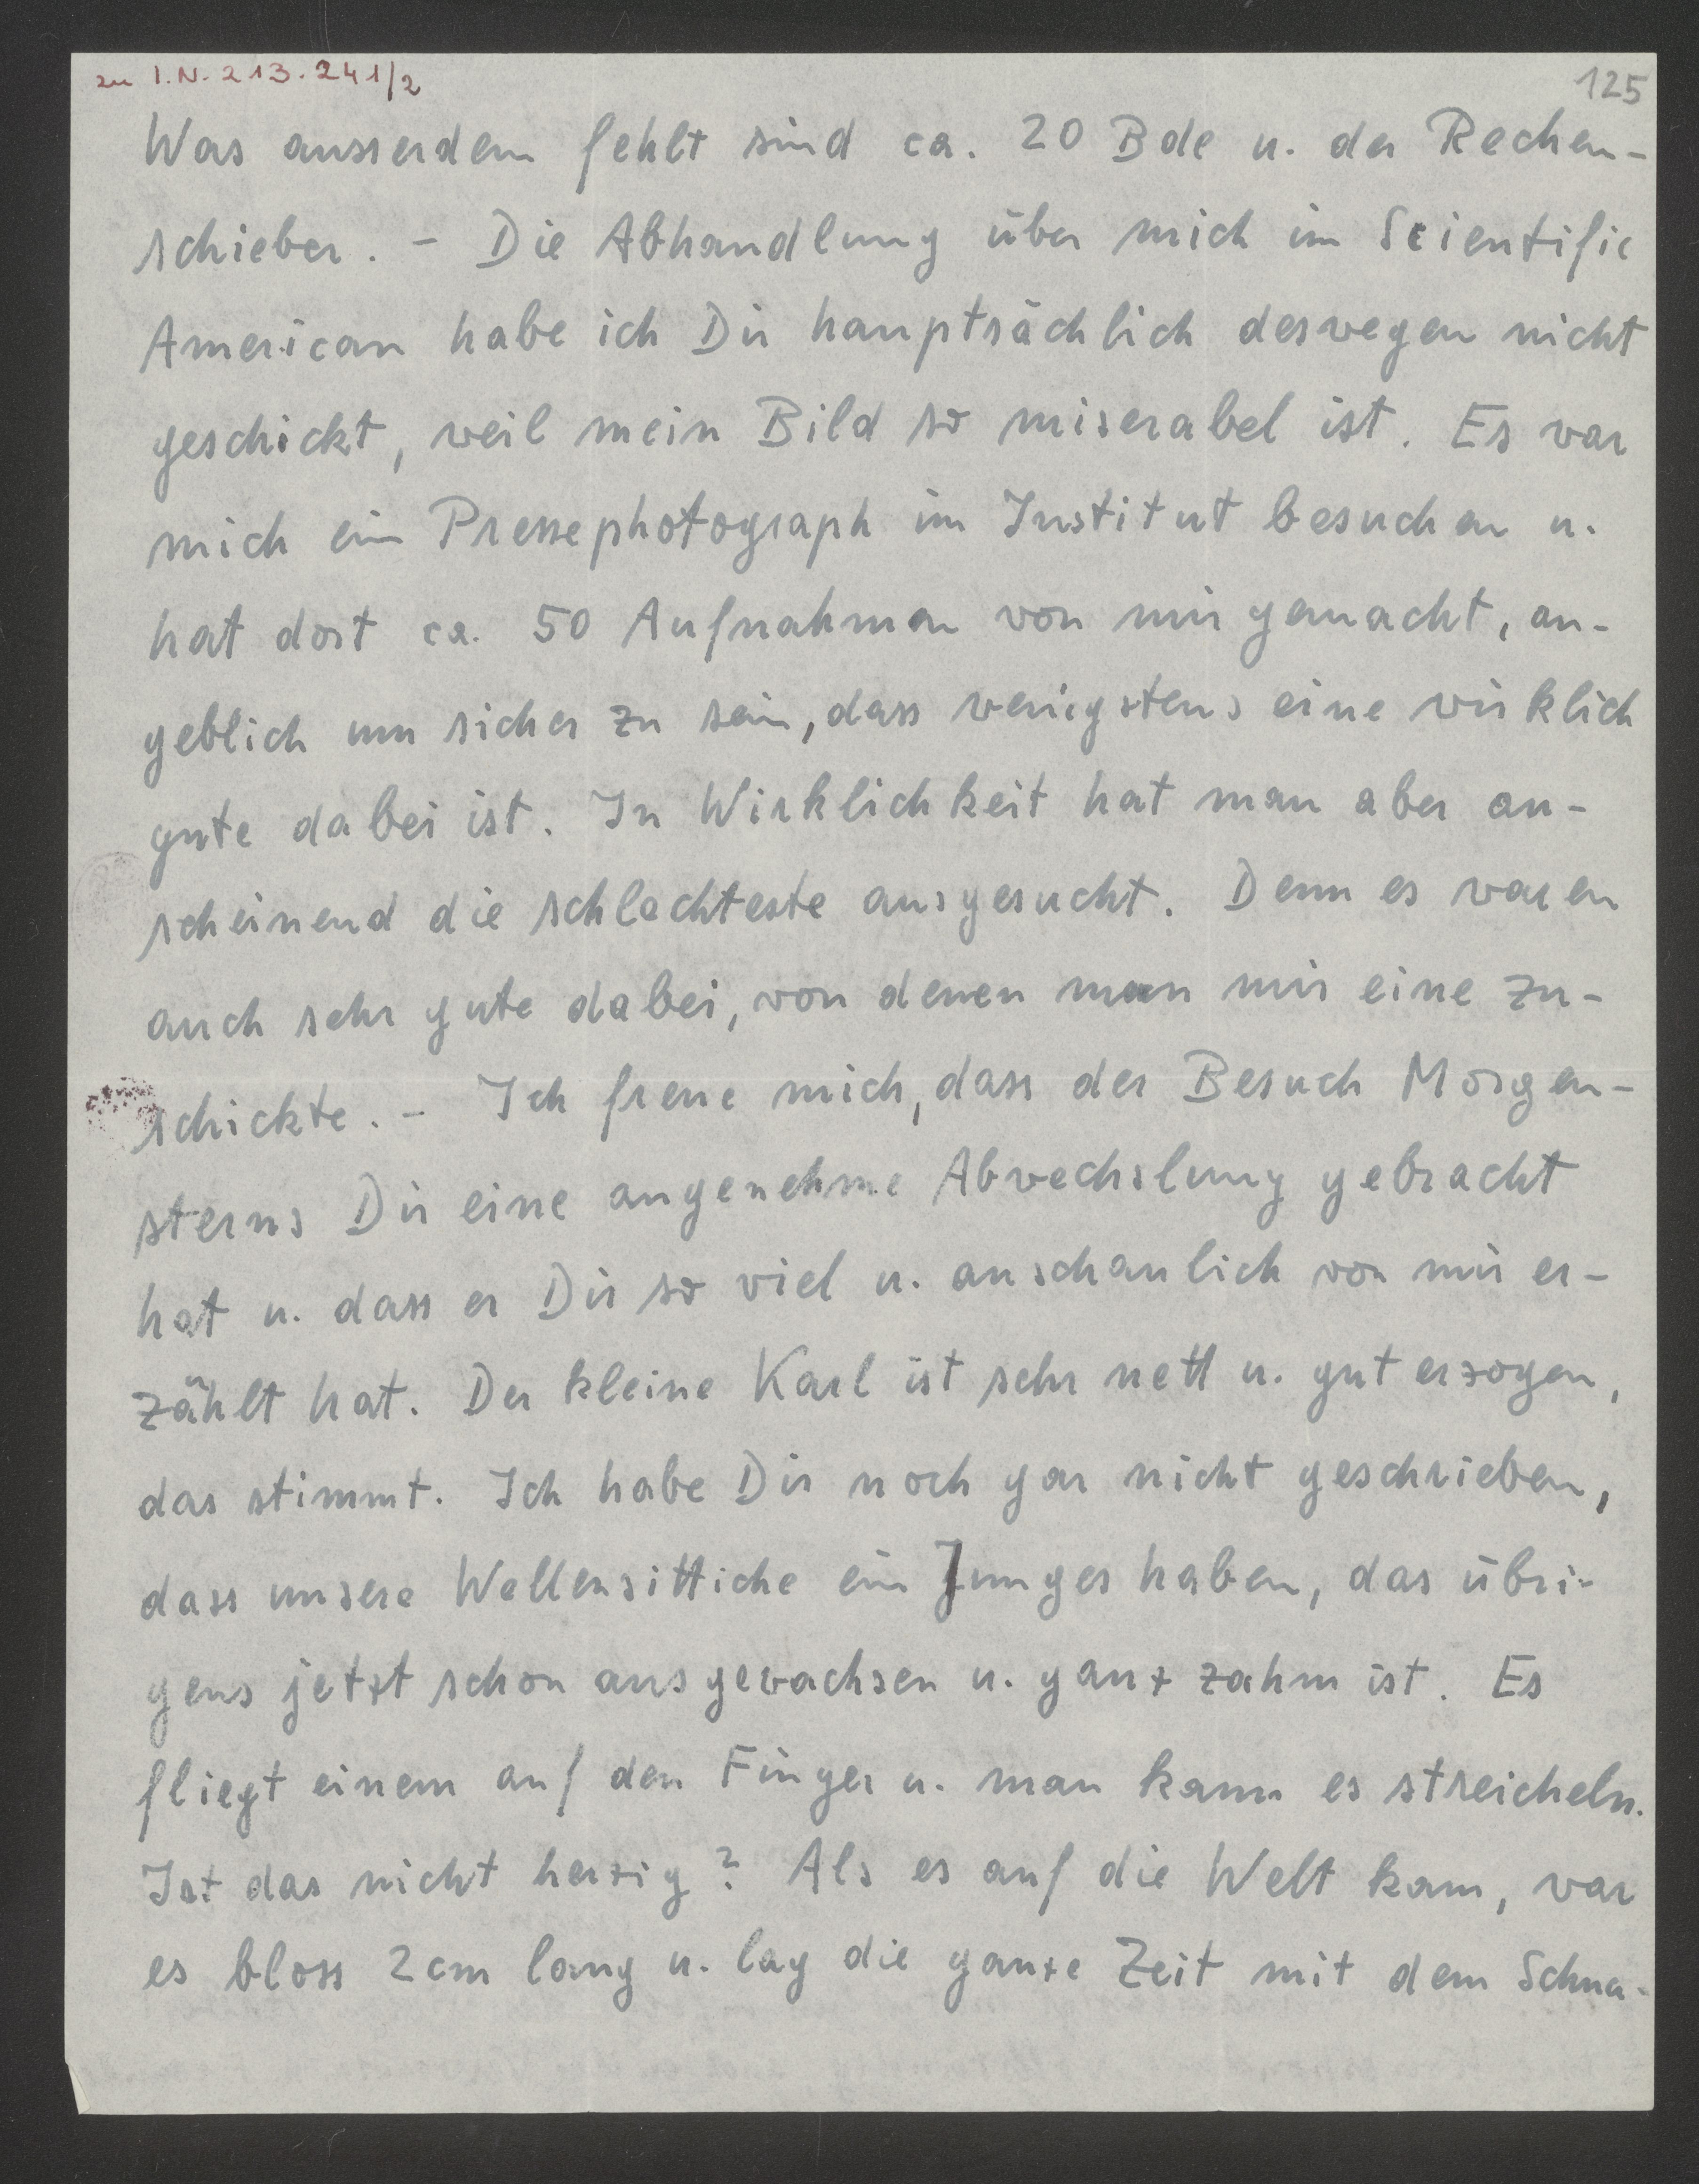 zu I.N. 213.241/2
125
Was ausserdem fehlt sind ca. 20 Bde u. der Rechen-
schieber. – Die Abhandlung über mich im Scientific
American habe ich Dir hauptsächlich deswegen nicht
geschickt, weil mein Bild so miserabel ist. Es war
mich ein Pressephotograph im Institut besuchen u.
hat dort ca. 50 Aufnahmen von mir gemacht, an-
geblich um sicher zu sein, dass wenigstens eine wirklich
gute dabei ist. In Wirklichkeit hat man aber an-
scheinend die schlechteste ausgesucht. Denn es waren
auch sehr gute dabei, von denen man mir eine zu-
schickte. – Ich freue mich, dass der Besuch Morgen-
sterns Dir eine angenehme Abwechslung gebracht
hat u. dass er Dir so viel u. anschaulich von mir er-
zählt hat. Der kleine Karl ist sehr nett u. gut erzogen,
das stimmt. Ich habe Dir noch gar nicht geschrieben,
dass unsere Wellensittiche ein Junges haben, das übri-
gens jetzt schon ausgewachsen u. ganz zahm ist. Es
fliegt einem auf den Finger u. man kann es streicheln.
Ist das nicht herzig? Als es auf die Welt kam, war
es bloss 2cm lang u. lag die ganze Zeit mit dem Schna-